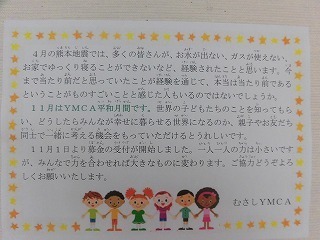 ４月の熊本地震では、多くの皆さんが、お水が出ない、ガスが使えない、
お家でゆっくり寝ることができないなど、経験されたことと思います。今
まで当り前だと思っていたことが経験を通じて、本当は当り前である
ということがものすごいことと感じた人もいるのではないでしょうか。
１１月はＹＭＣＡ平和月間です。世界の子どもたちのことを知ってもら
い、どうしたらみんなが幸せに暮らせる世界になるのか、親子やお友だち
同士で一緒に考える機会をもっていただけるとうれしいです。
１１月１日より募金の受付が開始しました。一人一人の力は小さいです
が、みんなで力を合わせれば大きなものに変わります。ご協力どうぞよろ
しくお願いいたします。
むさしＹＭＣＡ